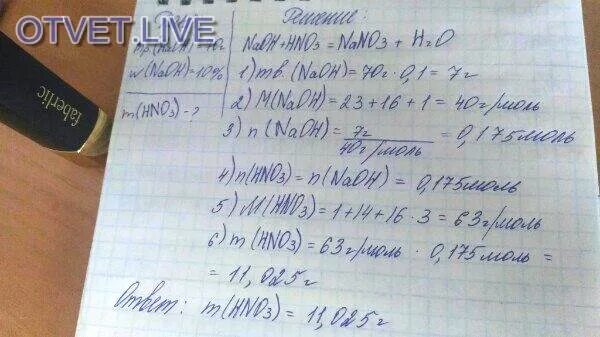 OTVET.LIVE
Решение:
mр.(NaOH)=70г
w(NaOH)=10%
m(HNO₃)-?
NaOH+HNO₃=NaNO₃+H₂O
1) mв.(NaOH)=70г·0,1=7г
2) M(NaOH)=23+16+1=40г/моль
3) n(NaOH)=7г/40г/моль=0,175моль
4) n(HNO₃)=n(NaOH)=0,175моль
5) M(HNO₃)=1+14+16·3=63г/моль
6) m(HNO₃)=63г/моль·0,175моль=
=11,025г
Ответ: m(HNO₃)=11,025г
faberlic